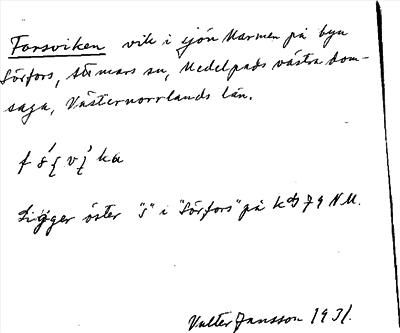 Forsviken vik i sjön Marmen på byn
Sörfors, Attmars sn, Medelpads västra dom-
saga, Västernorrlands län.
Ligger öster "S" i "Sörfors" på kbl 79 NV.
Valter Jansson 1931.